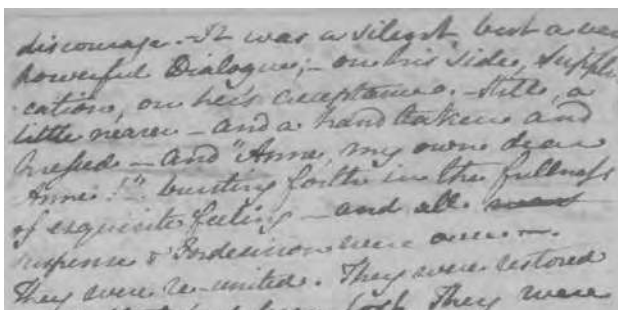 discourage. - It was a silent but a very
powerful Dialogue; - on his side, Suppli
:cation, on her's acceptance. - Still, a
little nearer - and a hand taken and
pressed - and "Anne, my own dear
Anne!" - bursting forth in the fullness
of exquisite feeling - and all
suspense & Indecision were over. -
They were re-united. They were restored
They were